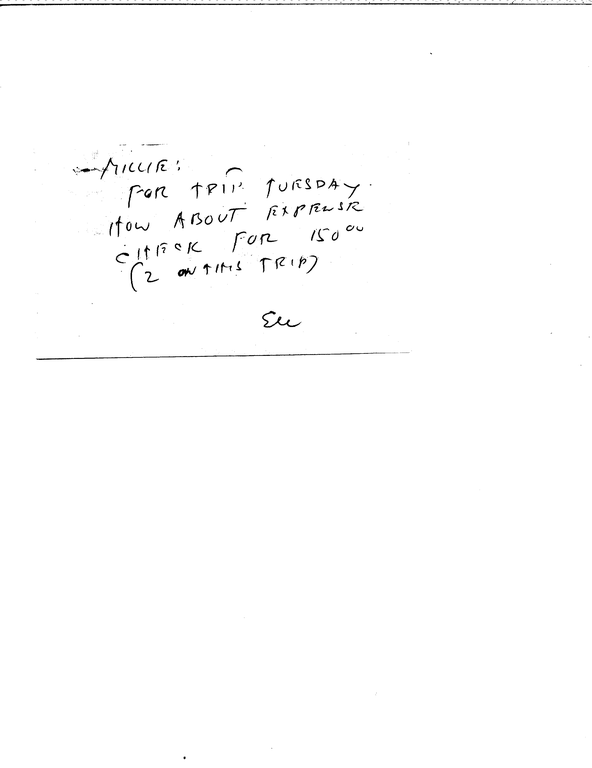 MILLIE:
FOR TRIP TUESDAY.
HOW ABOUT EXPENSE
CHECK FOR 150⁰⁰
(2 ON THIS TRIP)